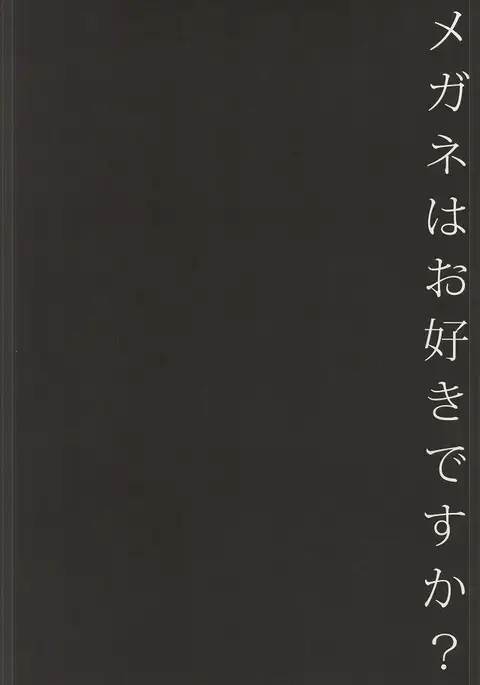 メガネはお好きですか?